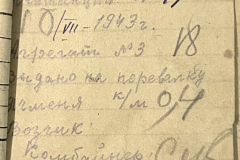 10/VII-1943г.
Агрегат №3 18
Выдано на перевалку
ячменя к/м 0,4
возчик
Комбайнер